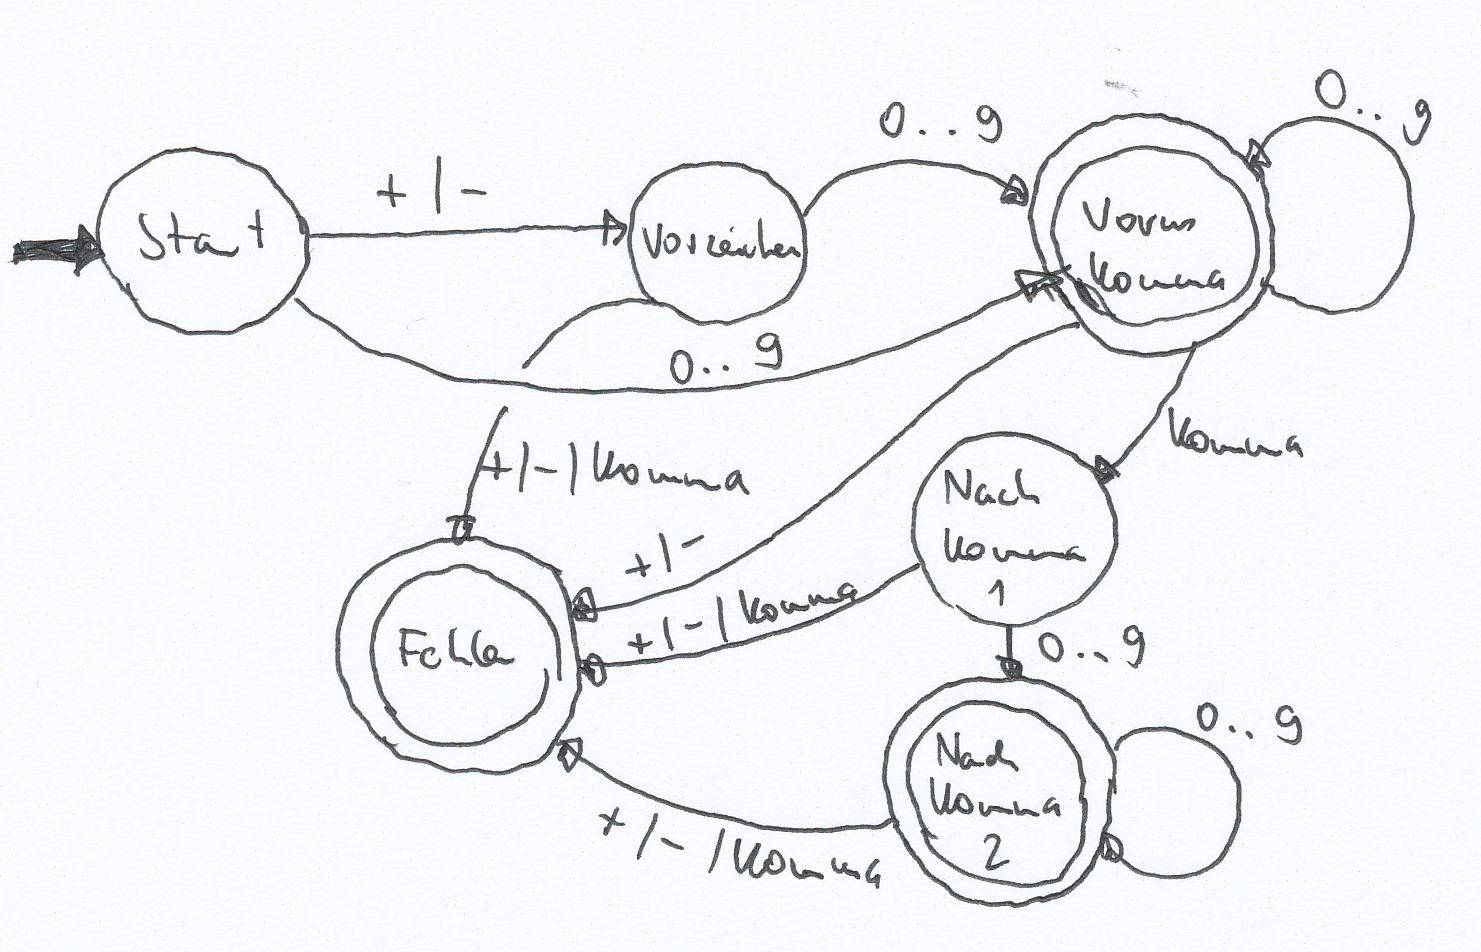 0..9
0..9
+ | -
Start
Vorzeichen
Vorm
Komma
0..9
Komma
+ | - | Komma
Nach
Komma
1
+ | -
+ | - | Komma
Fehler
0..9
0..9
Nach
Komma
2
+ | - | Komma